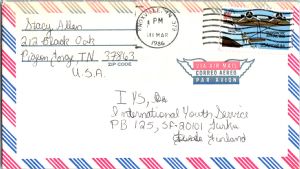 Stacy Allen
212 Black Oak
Pigeon Forge TN 37863
ZIP CODE
U.S.A.
PM
11 MAR
1986
VIA AIR MAIL
CORREO AEREO
PAR AVION
IYS,
International Youth Service
PB 125, SF-20101 Turku
Finland